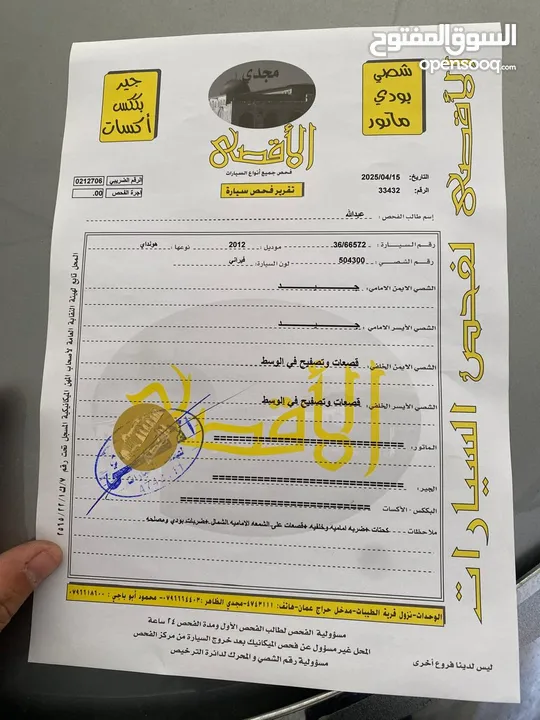 السوق المفتوح
opensooq.com
جير
بكس
أكسات
مجدي
شصي
بودي
ماتور
الأقصى
فحص جميع أنواع السيارات
تقرير فحص سيارة
التاريخ: 2025/04/15
الرقم: 33432
الرقم الضريبي 0212706
أجرة الفحص .00
إسم طالب الفحص: عبدالله
رقم السيارة: 36/66572 موديل: 2012 نوعها: هونداي
رقم الشصي: 504300 لون السيارة: فيراني
الشصي الايمن الامامي: جيد
الشصي الأيسر الامامي: جيد
الشصي الايمن الخلفي: قصعات وتصفيح في الوسط
الشصي الأيسر الخلفي: قصعات وتصفيح في الوسط
الماتور:
الجير:
البكس - الأكسات
ملاحظات: كحتات +ضربه امامية وخلفيه +قصعات على الشمعه الاماميه الشمال +ضربات بودي ومصلحه
الأقصى
الوحدات-نزول قرية الطيبات-مدخل حراج عمان-هاتف: ٤٧٤٣١١١-مجدي الظاهر: ٠٧٩٦٦٦٤٤٠٣- محمود أبو ناجي: ٠٧٩٦٦١٨٦٠٠
مسؤولية الفحص لطالب الفحص الأول ومدة الفحص ٢٤ ساعة
المحل غير مسؤول عن فحص الميكانيك بعد خروج السيارة من مركز الفحص
مسؤولية رقم الشصي و المحرك لدائرة الترخيص
ليس لدينا فروع أخرى
الأقصى لفحص السيارات
المحل تابع لهيئة النقابة العامة لأصحاب المهن الميكانيكية المسجل تحت رقم